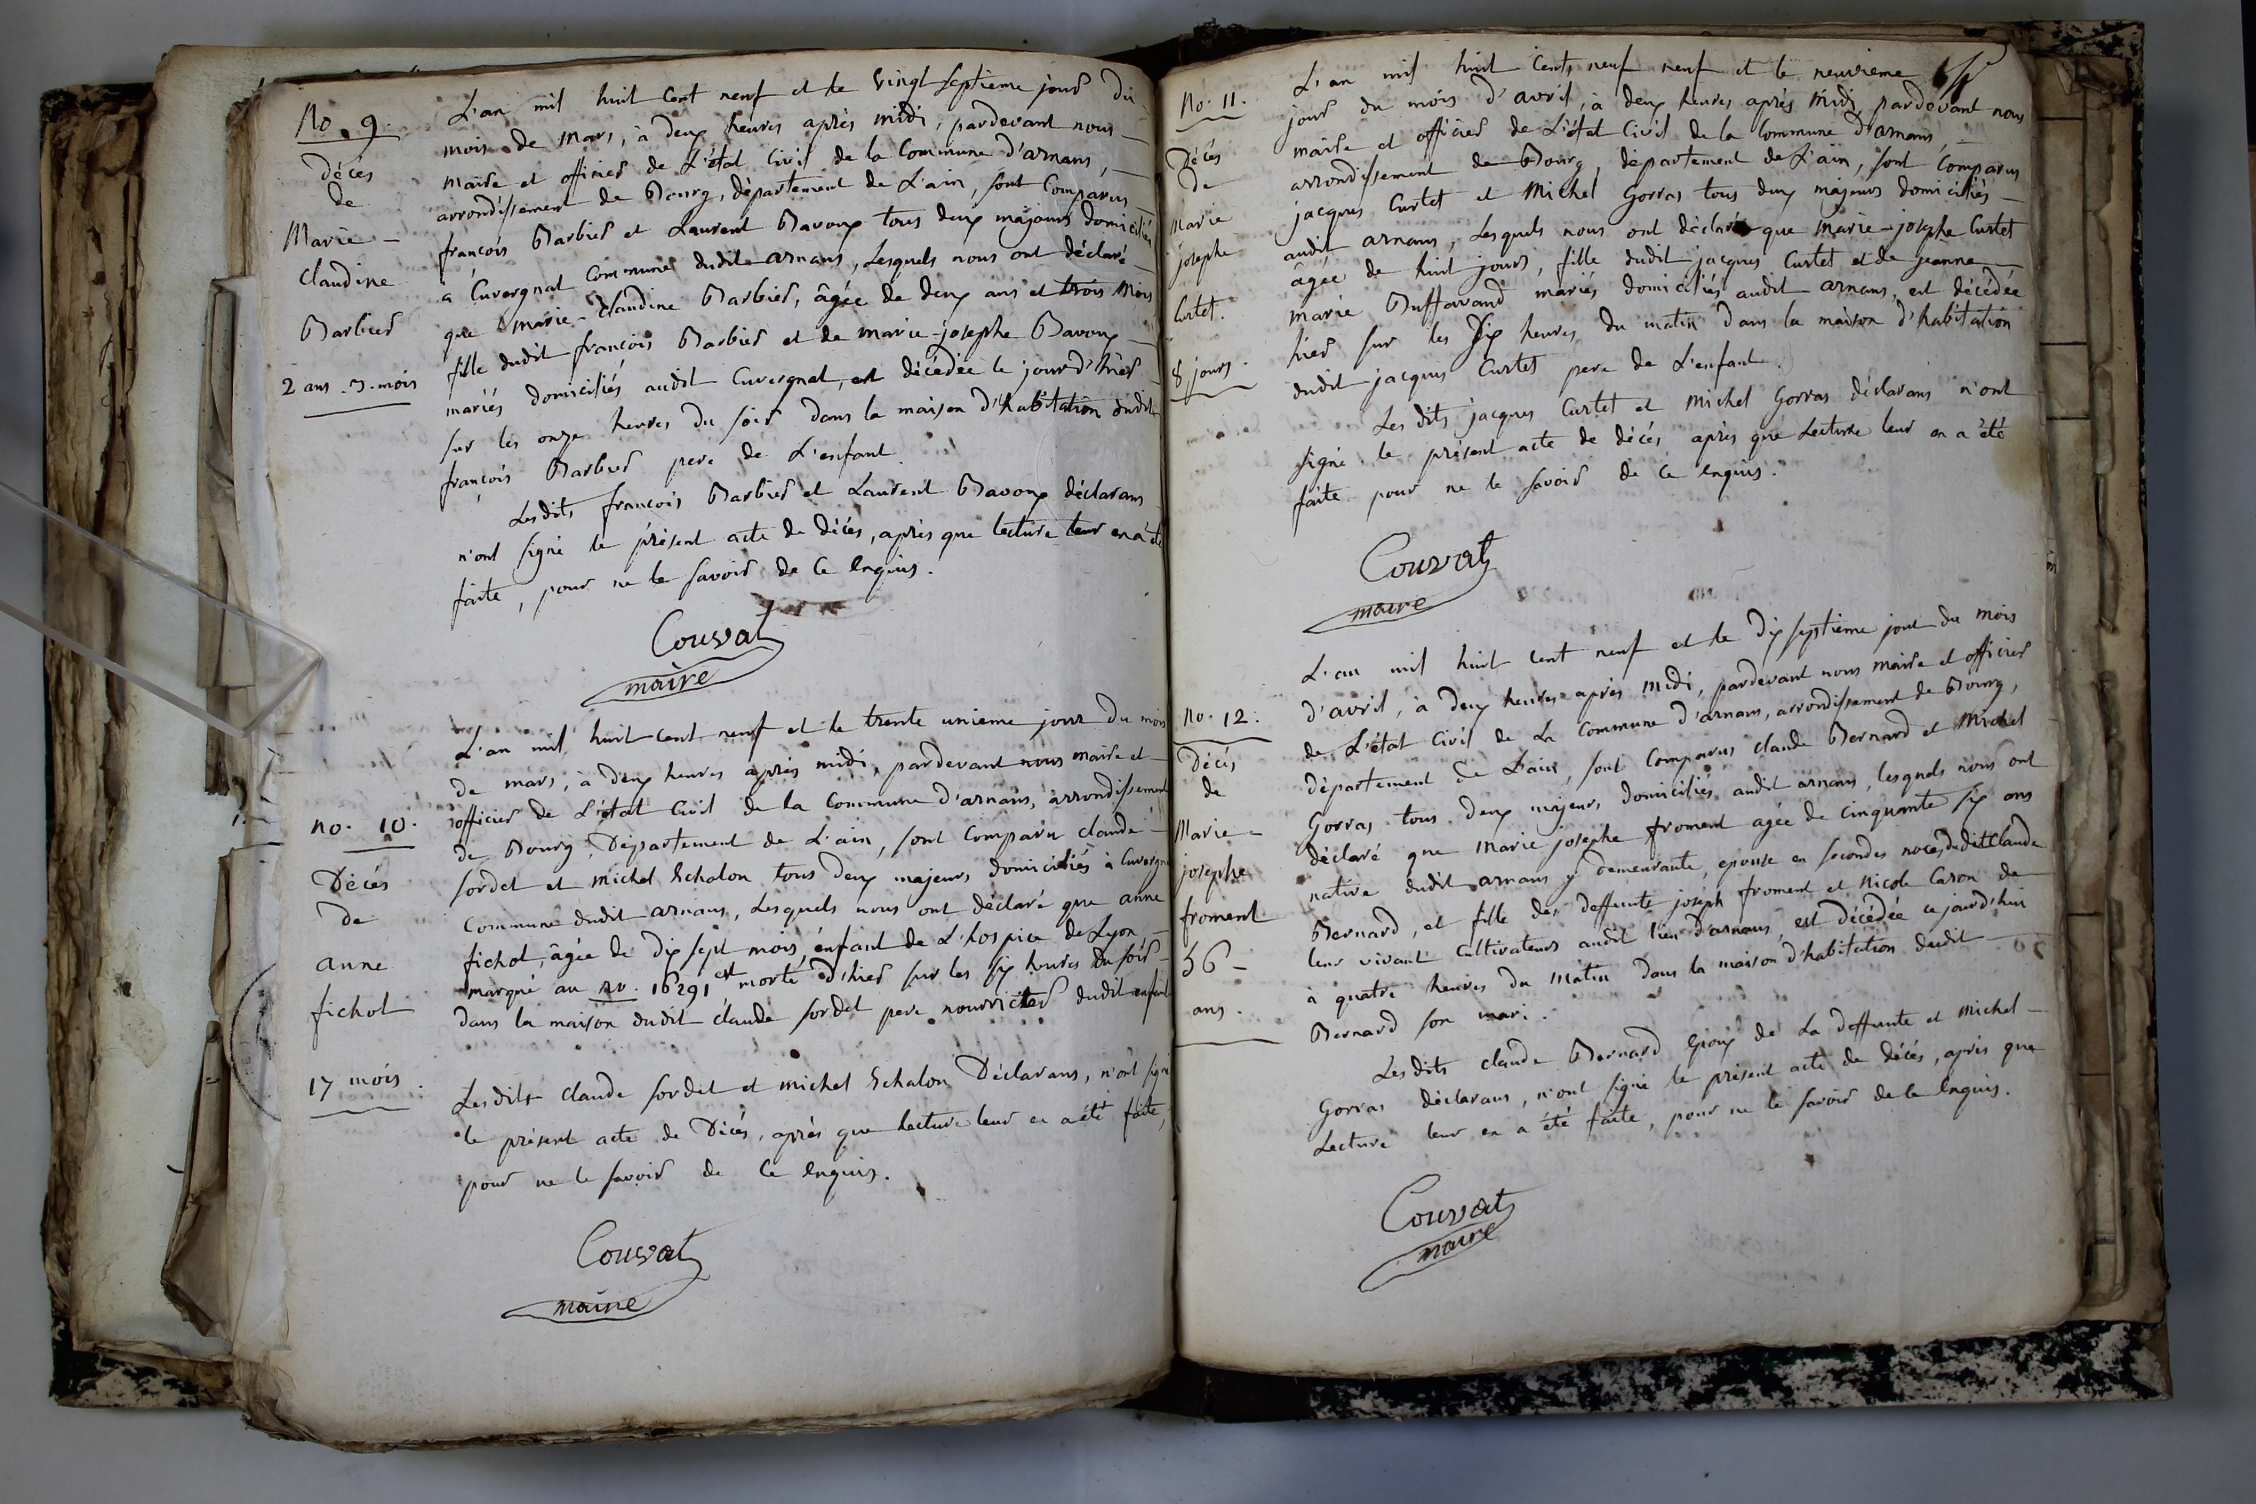 No. 9.
Décés
de
Marie -
Claudine
Barbier
2 ans. 3. mois
L'an mil huit cent neuf et le vingt septieme jour du
mois de mars, à deux heures après midi, pardevant nous
maire et officier de L'état Civil de la Commune d'arnans,
arrondissement de Bourg, département de L'ain, sont Comparus
françois Barbier et Laurent Bavoux tous deux majeurs domiciliés
a Cuvergnat Commune dudit arnans, Lesquels nous ont déclaré
que marie-Claudine Barbier, âgée de deux ans et trois mois
fille dudit françois Barbier et de marie-josephe Bavoux
mariés domiciliés audit Cuvergnat, est décédée le jour d'hier
sur les onze heures du soir dans la maison d'habitation dudit
françois Barbier pere de L'enfant
Lesdits françois Barbier et Laurent Bavoux déclarans
n'ont signé le présent acte de décés, après que lecture leur en a été
faite, pour ne le savoir de ce enquis.
Couvat
maire
no. 10.
Décés
de
anne
fichot
17 mois.
L'an mil huit cent neuf et le trente unieme jour du mois
de mars, à deux heures après midi, pardevant nous maire et
officier de L'état Civil de la Commune d'arnans, arrondissement
de Bourg, Département de L'ain, sont Comparu claude
sordet et michel Echalon tous deux majeurs domiciliés à Cuvergnat
Commune dudit arnans, Lesquels nous ont déclaré que anne
fichot, âgée de dix sept mois, enfant de L'hospice de Lyon
marqué au no. 16291 est morte d'hier sur les six heures du soir
dans la maison dudit claude sordet pere nourricier dudit enfant
Lesdits claude sordet et michel Echalon Déclarans, n'ont signé
le présent acte de Décés, après que Lecture leur en a été faite,
pour ne le savoir de ce enquis.
Couvat
maire
No. 11.
Décés
de
Marie
josephe
Curtet.
8 jours.
L'an mil huit Cents neuf neuf et le neuvieme
jour du mois d'avril, à deux heures après midi pardevant nous
maire et officier de L'état Civil de la Commune d'arnans,
arrondissement de Bourg, département de L'ain, sont Comparus
jacques Curtet et Michel Gorras tous deux majeurs domiciliés
audit arnans, Lesquels nous ont déclaré que marie-josephe Curtet
âgée de huit jours, fille dudit jacques Curtet et de jeanne
marie Buffavand mariés domiciliés audit arnans, est décédée
hier sur les dix heures du matin dans la maison d'habitation
dudit jacques Curtet pere de L'enfant.
Lesdits jacques Curtet et Michel Gorras déclarans n'ont
signé le présent acte de décés après que Lecture leur en a été
faite pour ne le savoir de ce enquis.
Couvat
maire
No. 12.
Décés
de
Marie -
josephe
froment
56 -
ans.
L'an mil huit cent neuf et le dix septieme jour du mois
d'avril, à deux heures après midi, pardevant nous maire et officier
de L'état Civil de La Commune d'arnans, arrondissement de Bourg,
département de L'ain, sont Comparus claude Bernard et Michel
Gorras tous deux majeurs, domiciliés audit arnans, lesquels nous ont
déclaré que marie josephe froment agée de cinquante six ans
native dudit arnans y demeurante, epouse en secondes noces dudit Claude
Bernard, et fille des deffunts joseph froment et Nicole Caron de
leur vivant Cultivateurs audit lieu d'arnans, est décédée cejourd'hui
à quatre heures du matin dans la maison d'habitation dudit
Bernard son mari.
Lesdits claude Bernard Epoux de La deffunte et Michel
Gorras déclarans, n'ont signé le présent acte de décés, après que
Lecture leur en a été faite, pour ne le savoir de ce enquis.
Couvat
maire